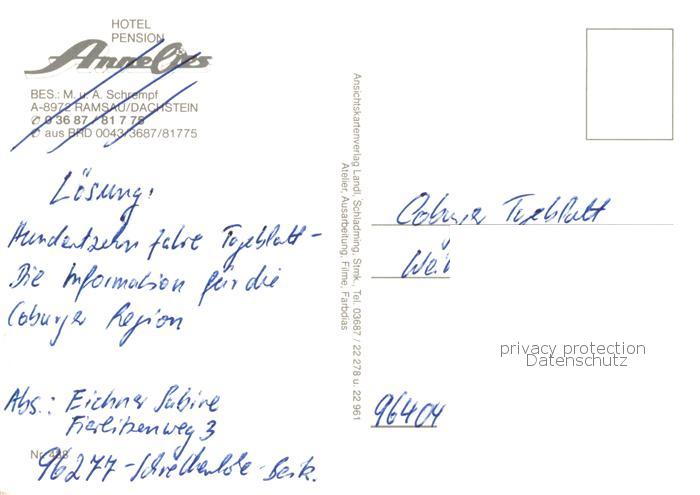 HOTEL
PENSION
Annelies
BES.: M. u. A. Schrempf
A-8972 RAMSAU/DACHSTEIN
✆ 0 36 87 / 81 7 75
✆ aus BRD 0043/3687/81775
Lösung:
Hundertzehn Jahre Tageblatt -
Die Information für die
Coburger Region
Abs.: Eichner Sabine
weg 3
Nr.
96277
Ansichtskartenverlag Landl, Schladming, Stmk., Tel. 03687 / 22 278 u. 22 961
Atelier, Ausarbeitung, Filme, Farbdias
Coburger Tageblatt
privacy protection
Datenschutz
96404